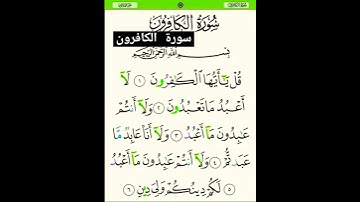 سُورَةُ الكَافِرُونَ
سورة الكافرون
بِسْمِ اللَّهِ الرَّحْمَٰنِ الرَّحِيمِ
قُلْ يَٰٓأَيُّهَا ٱلْكَٰفِرُونَ ١ لَآ
أَعْبُدُ مَا تَعْبُدُونَ ٢ وَلَآ أَنتُمْ
عَٰبِدُونَ مَآ أَعْبُدُ ٣ وَلَآ أَنَا۠ عَابِدٌ مَّا
عَبَدتُّمْ ٤ وَلَآ أَنتُمْ عَٰبِدُونَ مَآ أَعْبُدُ
٥ لَكُمْ دِينُكُمْ وَلِيَ دِينِ ٦